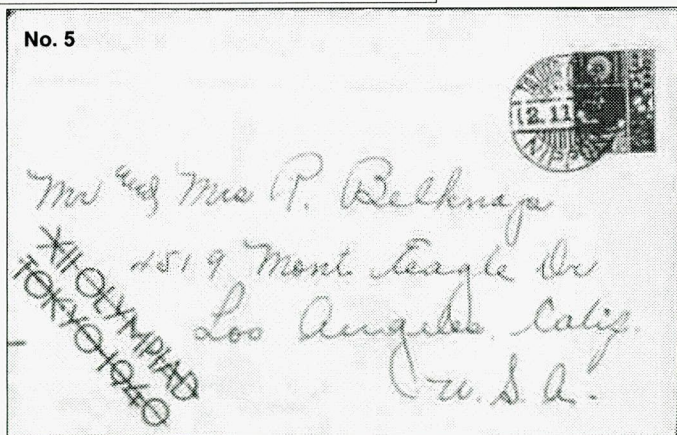 No. 5
12.11
NIPPON
Mr and Mrs R. Belknap
4519 Mont Eagle Dr
Los Angeles, Calif.
U. S. A.
XII OLYMPIAD
TOKYO-1940